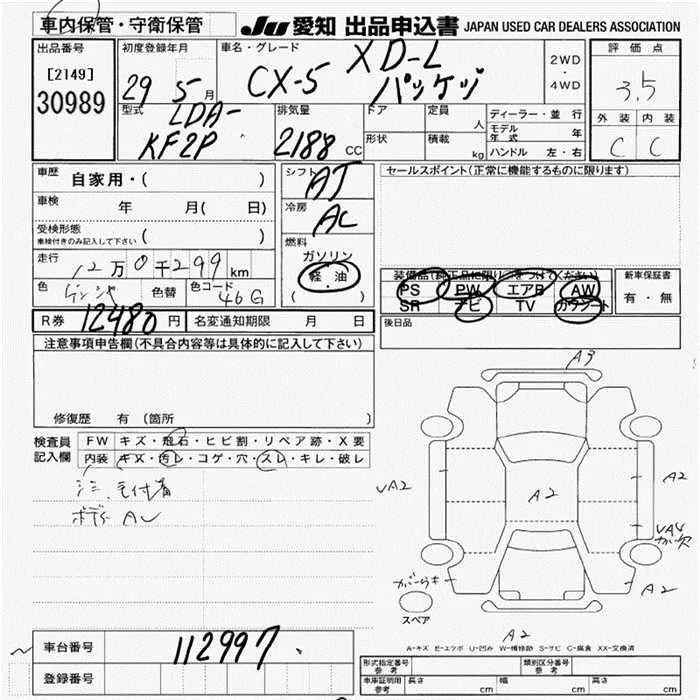 車内保管・守衛保管 JU 愛知 出品申込書 JAPAN USED CAR DEALERS ASSOCIATION
出品番号 初度登録年月 車名・グレード 2WD・4WD 評価点
[2149] 29 5月 CX-5 XD-L パッケジ 3.5
30989
型式 LDA-KF2P 排気量 2188 CC ドア 定員 人 ディーラー・並行 外装 内装
形状 積載 kg モデル年式 年 C C
ハンドル 左・右
車歴 自家用・( ) シフト AT セールスポイント(正常に機能するものに限ります)
車検 年 月( 日) 冷房 AC
受検形態 ( )
車検付きのみ記入して下さい
燃料 ガソリン 軽・油 ( )
走行 12万0千299km
色 色替 色コード 46G
装備品(純正品に限り○をつけてください) 新車保証書
PS PW エアB AW 有・無
SR ナビ TV カワシート
R券 12480円 名変通知期限 月 日 後日品
注意事項申告欄(不具合内容等は具体的に記入して下さい)
修復歴 有 (箇所 )
検査員記入欄 FW キズ・飛石・ヒビ割・リペア跡・X要
内装 キズ・汚レ・コゲ・穴・スレ・キレ・破レ
シミ、毛付着
ボディ AU
A3
UA2
A2
A2
A2
A2
スペア
A-キズ E-エクボ U-凹み W-補修跡 S-サビ C-腐食 XX-交換済
車台番号 112997
登録番号
形式指定番号 参考 類別区分番号 参考
車庫証明用 参考 長さ cm 幅 cm 高さ cm